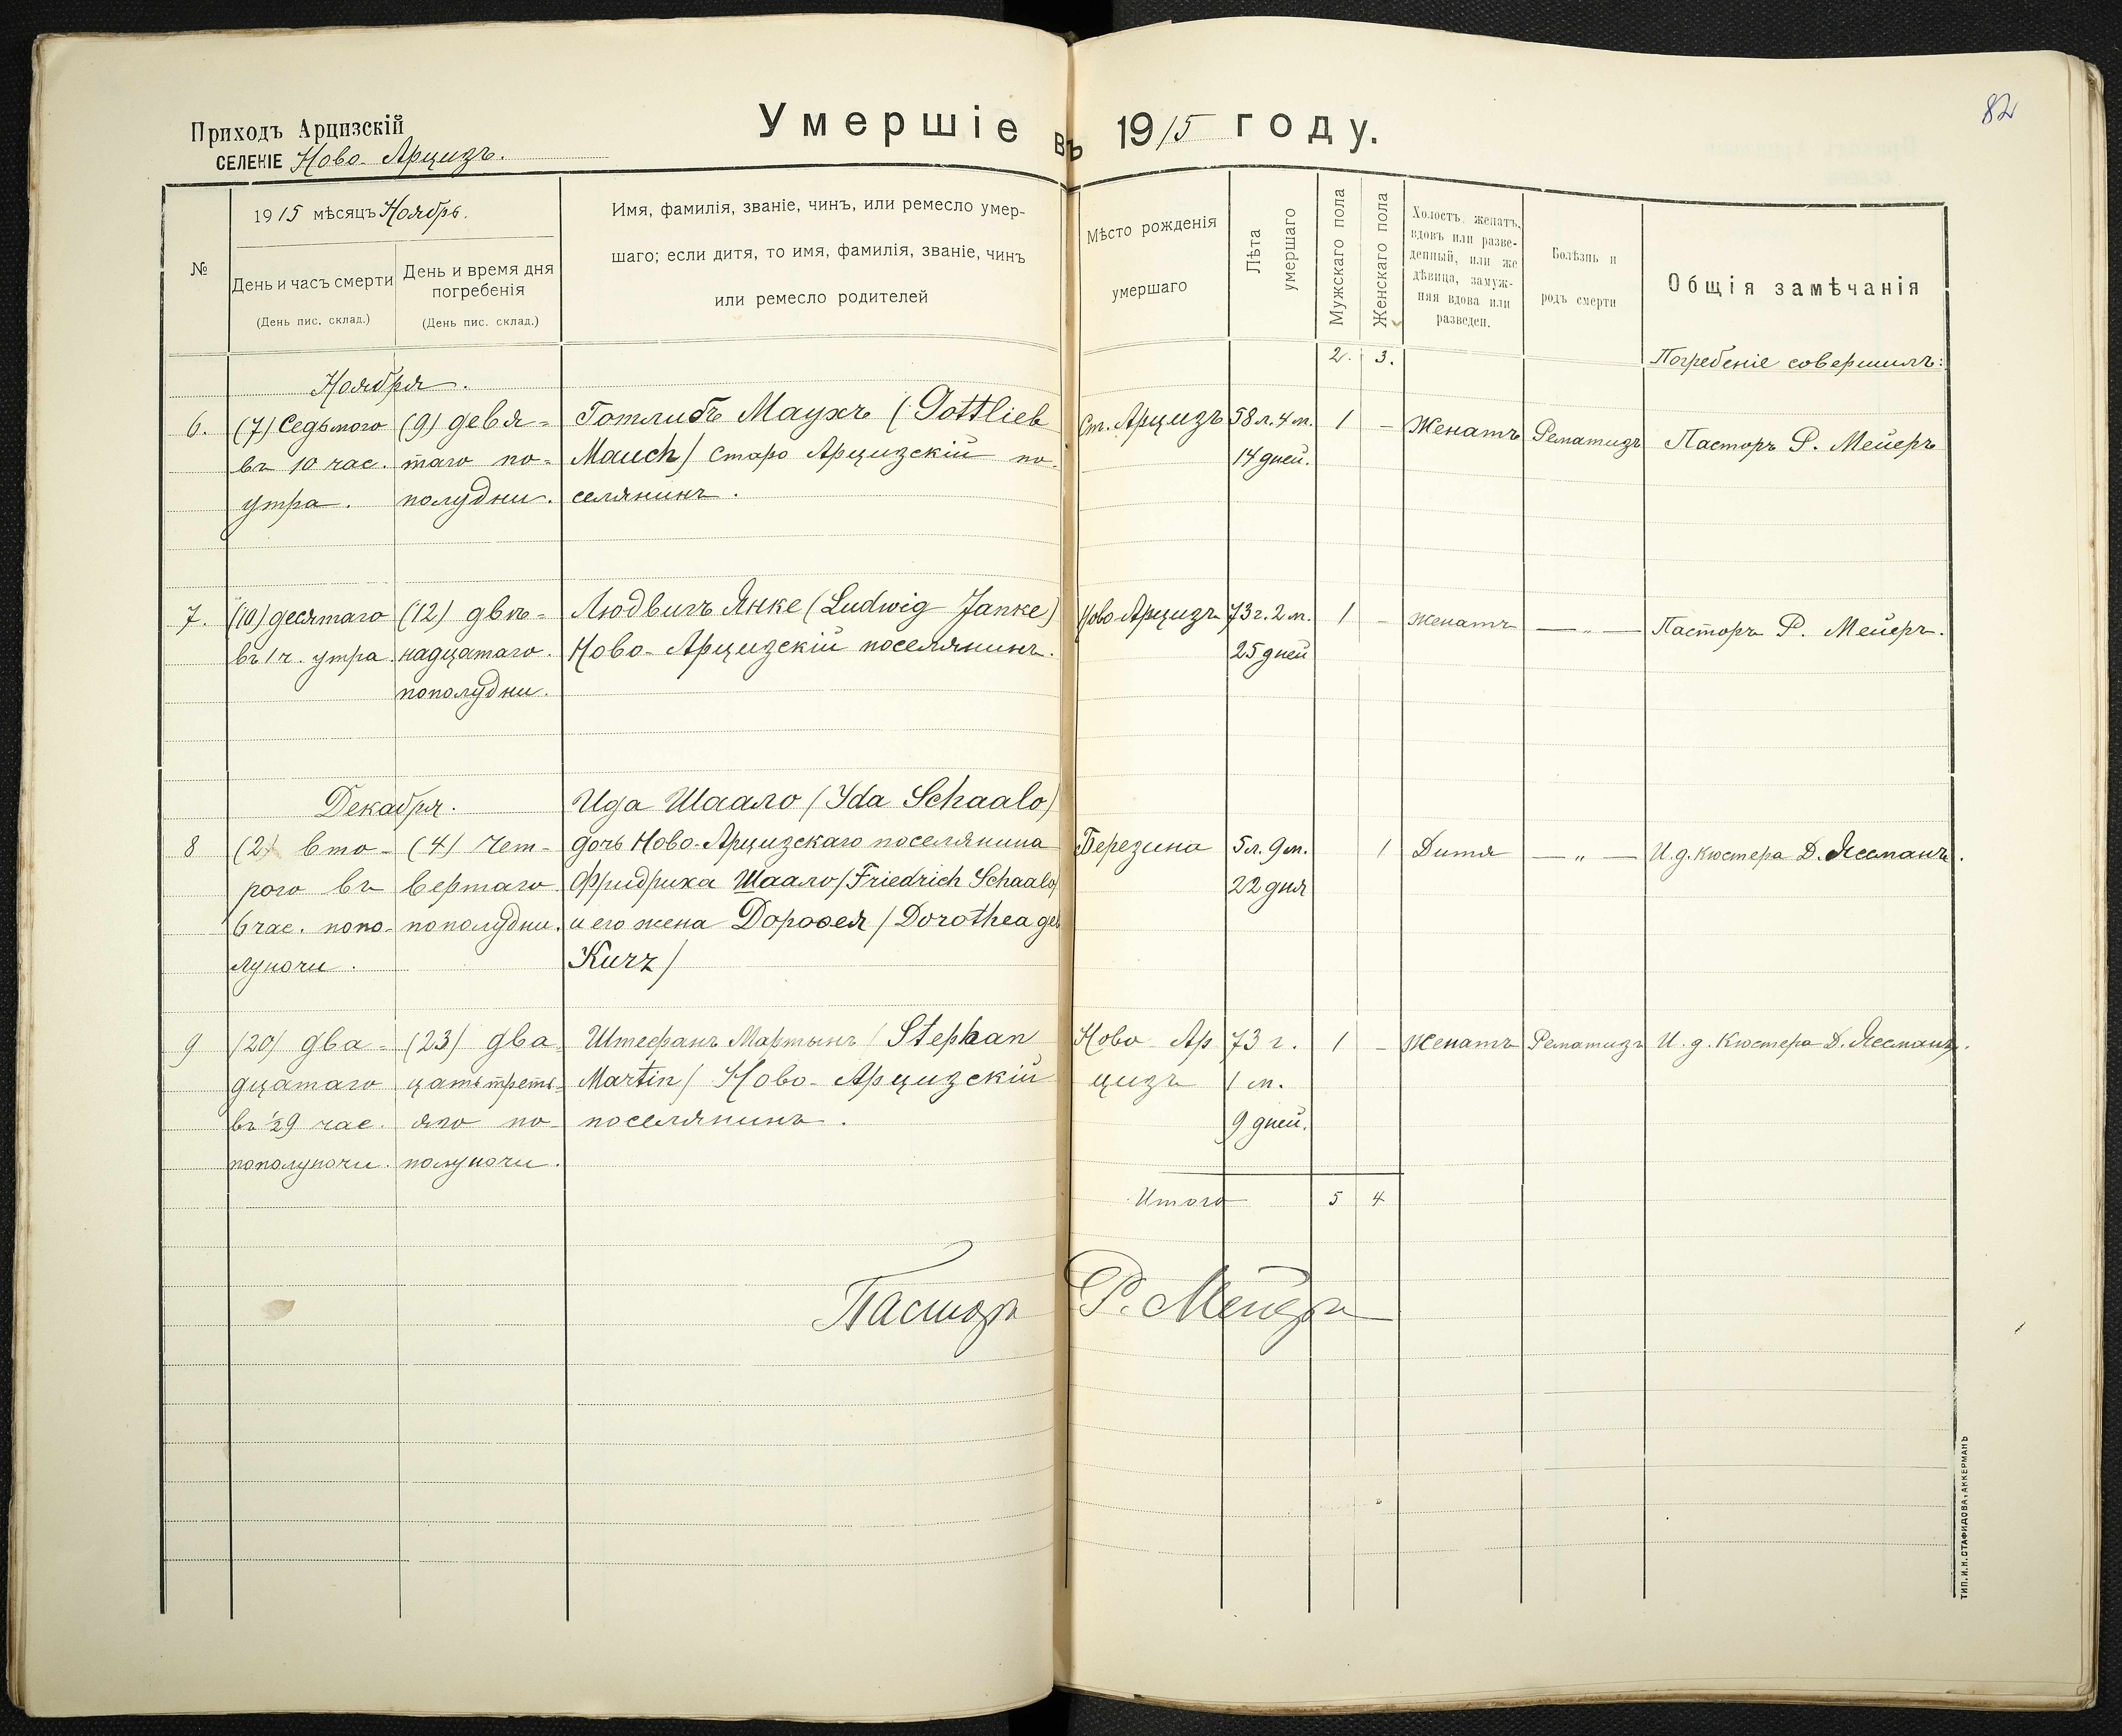 82
Приходъ Арцизскій
СЕЛЕНІЕ Ново-Арцизъ.
Умершіе въ 1915 году.
№
1915 мѣсяцъ Ноябрь.
День и часъ смерти
(День пис. склад.)
День и время дня
погребенія
(День пис. склад.)
Имя, фамилія, званіе, чинъ, или ремесло умер-
шаго; если дитя, то имя, фамилія, званіе, чинъ
или ремесло родителей
Мѣсто рожденія
умершаго
Лѣта
умершаго
Мужскаго пола
Женскаго пола
Холостъ, женатъ,
вдовъ или разве-
денный, или же
дѣвица, замуж-
няя вдова или
разведен.
Болѣзнь и
родъ смерти
Общія замѣчанія
2. 3.
Погребеніе совершилъ:
Ноября.
6.
(7) Седьмого
въ 10 час.
утра.
(9) девя-
таго по-
полудни.
Готлибъ Маухъ (Gottlieb
Mauch) Старо Арцизскій по-
селянинъ.
Ст. Арцизъ
58 л. 4 м.
14 дней.
1 -
Женатъ
Рематизъ
Пасторъ Р. Мейеръ
7.
(10) десятаго
въ 1 ч. утра.
(12) двѣ-
надцатаго.
пополудни.
Людвигъ Янке (Ludwig Janke)
Ново-Арцизскій поселянинъ.
Ново Арцизъ
73 г. 2 м.
25 дней
1 -
женатъ
— „ —
Пасторъ Р. Мейеръ.
Декабря.
8
(2) вто-
рого въ
6 час. попо-
луночи.
(4) чет-
вертаго
пополудни.
Ида Шаало (Ida Schaalo)
дочь Ново-Арцизскаго поселянина
Фридриха Шаало (Friedrich Schaalo)
и его жена Доровея (Dorothea geb
Kurz)
Березина
5 л. 9 м.
22 дня
1
Дитя
— „ —
И. д. кюстера Д. Яссманъ.
9
(20) два-
дцатаго
въ ½9 час.
пополуночи.
(23) два-
цатьтреть-
яго по-
полуночи.
Штефанъ Мартынъ (Stephan
Martin) Ново-Арцизскій
поселянинъ.
Ново-Ар
цизъ
73 г.
1 м.
9 дней.
1 -
Женатъ
Рематизъ
И. д. Кюстера Д. Яссманъ.
Итого 5 4
Пасторъ Р. Мейеръ
ТИП. И. Н. СТАФИДОВА, АККЕРМАНЪ